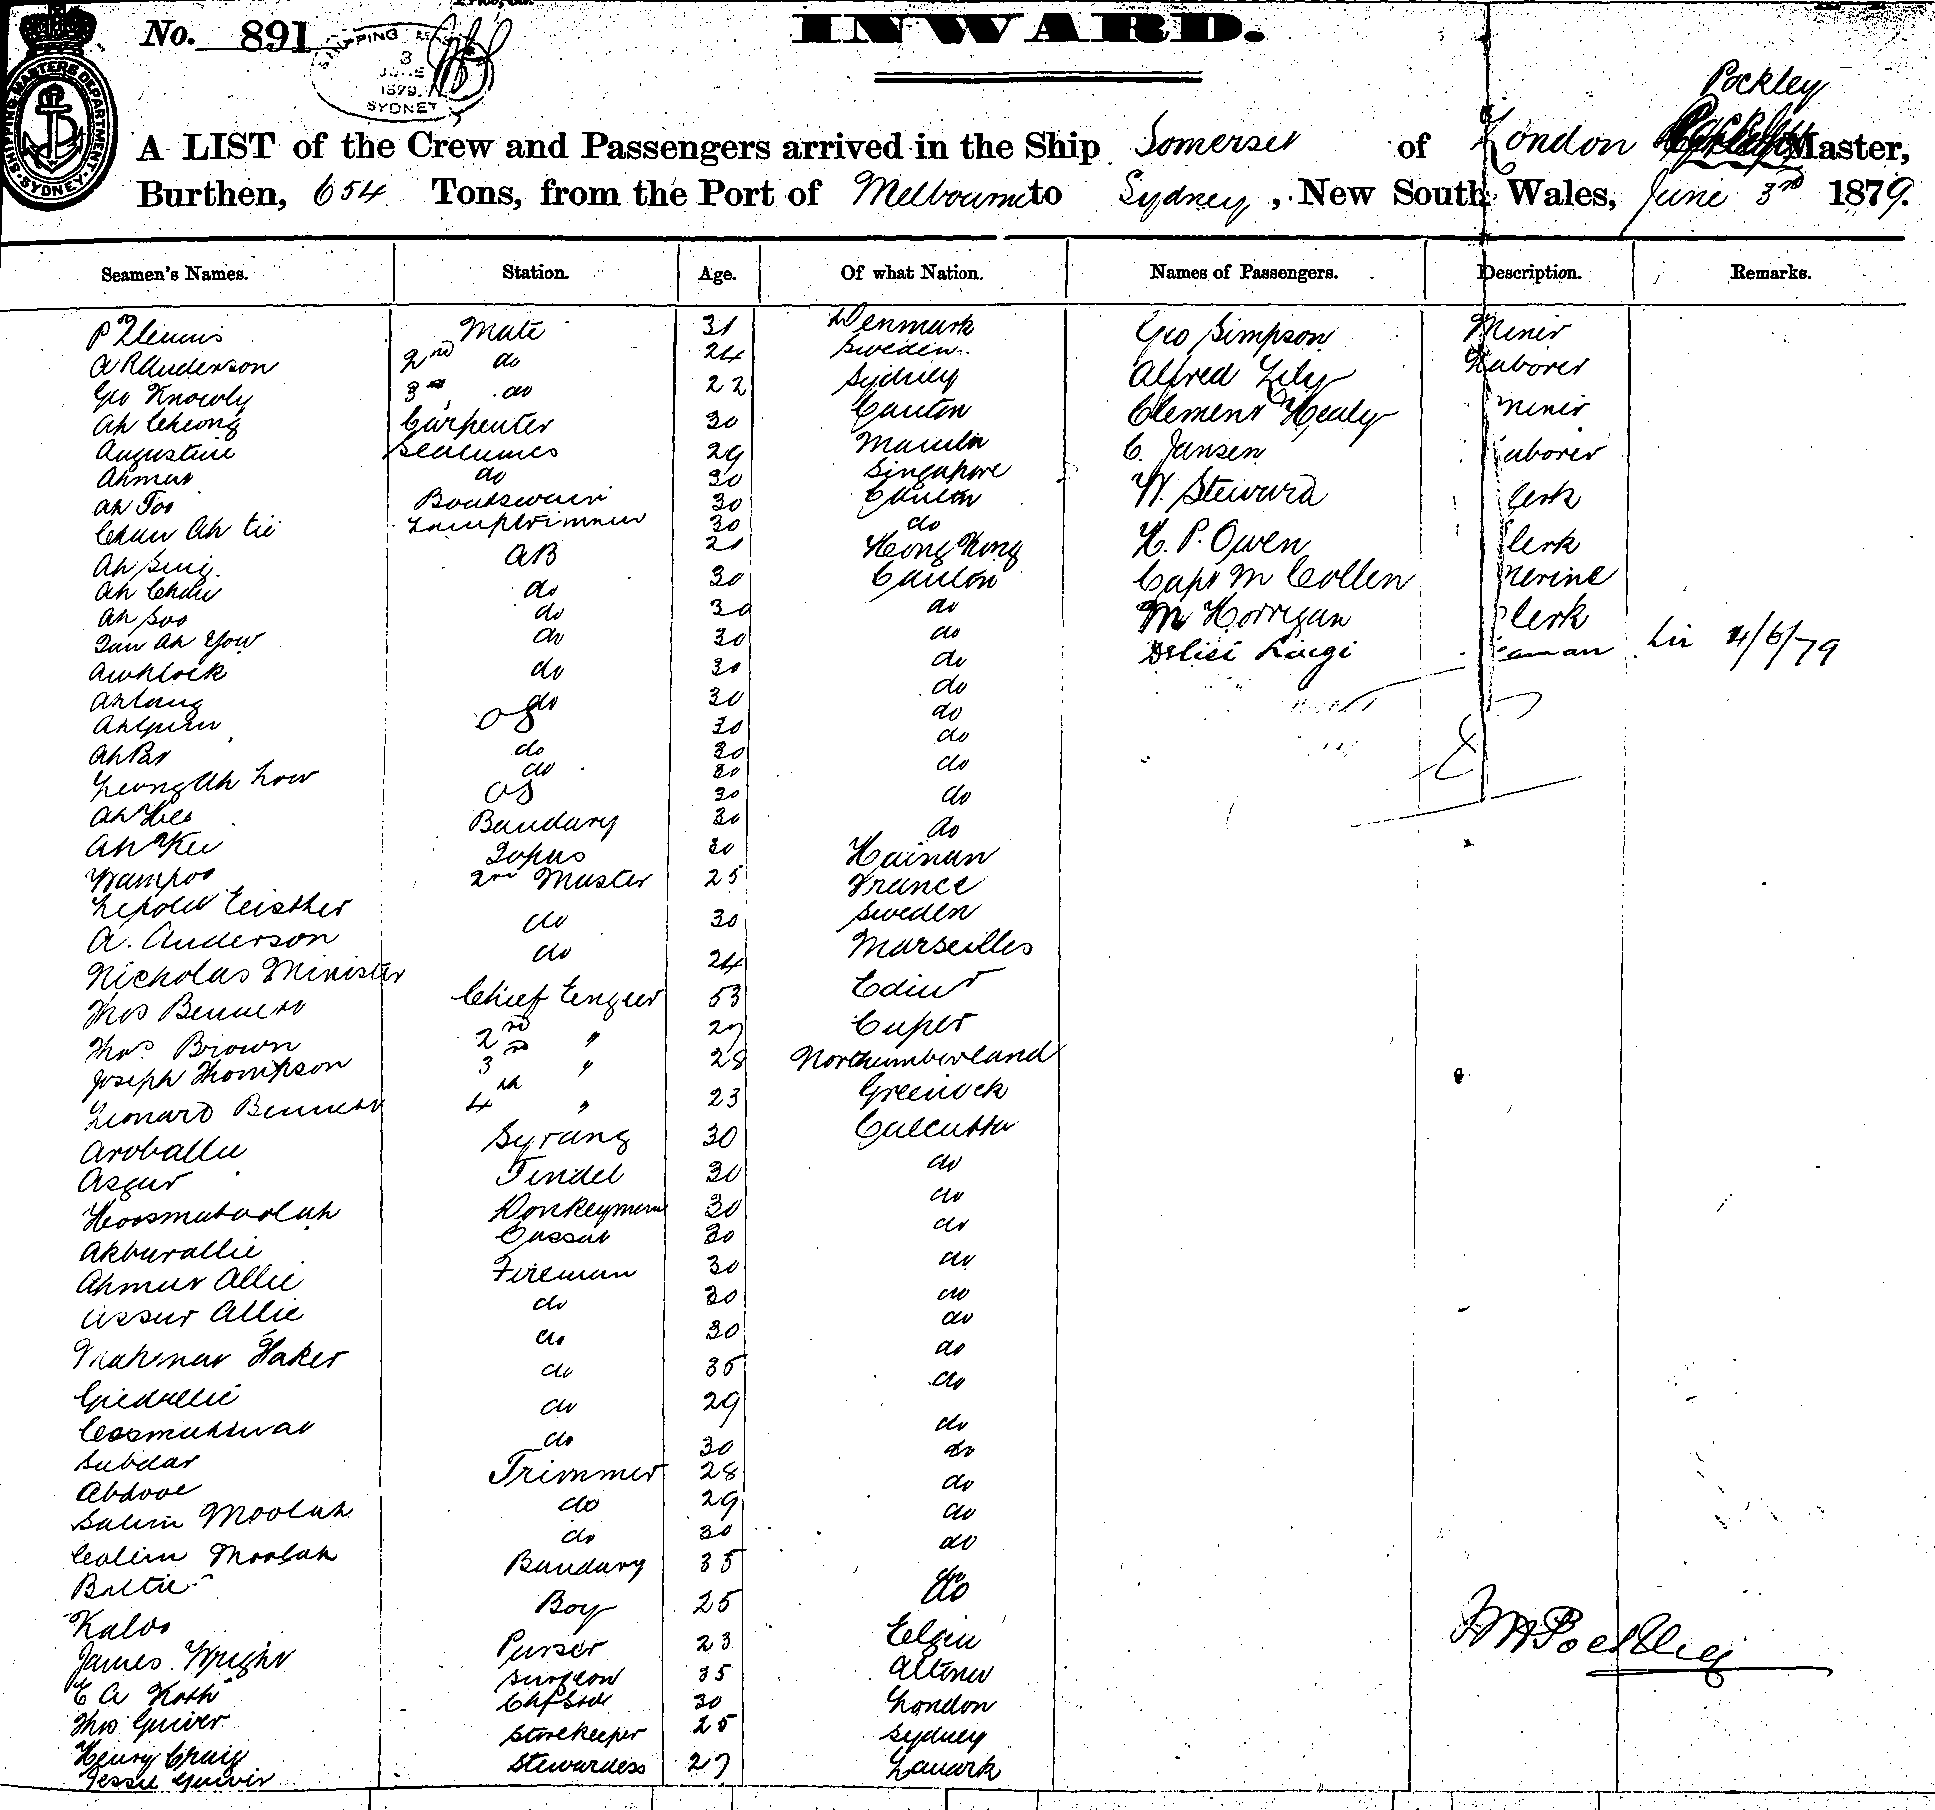 No. 891
SHIPPING MASTERS DEPARTMENT SYDNEY
SHIPPING
3
JUNE
1879
SYDNEY
INWARD.
Pockley
A LIST of the Crew and Passengers arrived in the Ship Somerset of London Master,
Burthen, 654 Tons, from the Port of Melbourne to Sydney, New South Wales, June 3rd 1879.
Seamen's Names. Station. Age. Of what Nation. Names of Passengers. Description. Remarks.
Mate 31 Denmark Geo Simpson Miner
A R Anderson 2nd do 24 Sweden Alfred Lily Laborer
Geo Knowly 3rd do 22 Sydney Clement Healy Miner
Ah Cheong Carpenter 30 Canton C. Jansen Laborer
Augustine 29 Manila W. Steward Clerk
Ahmat do 30 Singapore H. P. Owen Clerk
Ah Too Boatswain 30 Canton Capt M Collen
Chan Ah Lamptrimmer 30 do M Horrigan Clerk
Ah Sing AB 21 Hong Kong Luigi Seaman 4/6/79
Ah Chau do 30 Canton
Ah Soo do 30 do
Ah Yow do 30 do
Awklock do 30 do
Ahtang do 30 do
OS 30 do
Ah Bo do 30 do
Leong Ah Low do 30 do
Ah Hee OS 30 do
Ah Kee Bandary 30 do
Wampoo Topas 30 Hainan
Master 25 France
A. Anderson do 30 Sweden
Nicholas Minister do 24 Marseilles
Thos Bennett Chief Engeer 53 Edinr
Thos Brown 2nd " 27 Cuper
Joseph Thompson 3rd " 28 Northumberland
Leonard Bennett 4th " 23 Greenock
Aroballie Syrang 30 Calcutta
Asgur Tindel 30 do
Donkeyman 30 do
Akburallie Cassab 30 do
Ahmut Allie Fireman 30 do
Assur Allie do 30 do
do 30 do
do 35 do
do 29 do
Subdar do 30 do
Abdool Trimmer 28 do
Salim Moolah do 29 do
Calim Moolah do 30 do
Bandary 35 do
Kaloo Boy 25 do
James Wright Purser 23 Elgin
E A Roth Surgeon 35 Altona
Thos Guiver Chf Std 30 London
Henry Craig Storekeeper 25 Sydney
Jessie Guiver Stewardess 27 Lanark